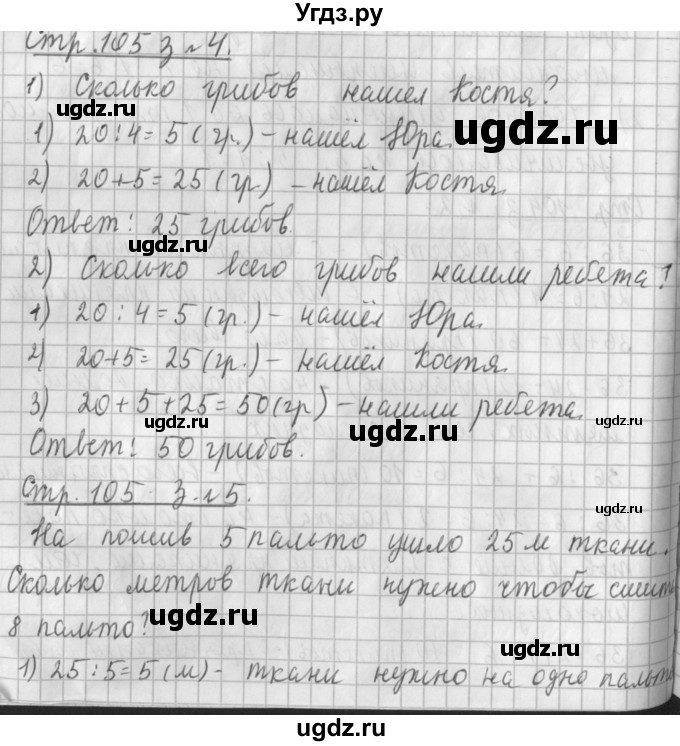 Угдз.ру
Стр. 105 з №4.
1) Сколько грибов нашел Костя?
ugdz.ru
ugdz.ru
1) 20:4=5(гр.)-нашёл Юра.
2) 20+5=25(гр.) -нашёл Костя.
ugdz.ru
Ответ: 25 грибов.
ugdz.ru
2) Сколько всего грибов нашли ребета?
1) 20:4=5(гр.)- нашёл Юра.
ugdz.ru
2) 20+5=25(гр.)- нашёл Костя.
ugdz.ru
3) 20+5+25=50(гр)-нашли ребета.
ugdz.ru
ugdz.ru
Ответ: 50 грибов.
Стр. 105 з.№5.
ugdz.ru
На пошив 5 пальто ушло 25 м ткани.
Сколько метров ткани нужно чтобы сшить
ugdz.ru
8 пальто?
ugdz.ru
1) 25:5=5(м)- ткани нужно на одно пальто
ugdz.ru
ugdz.ru